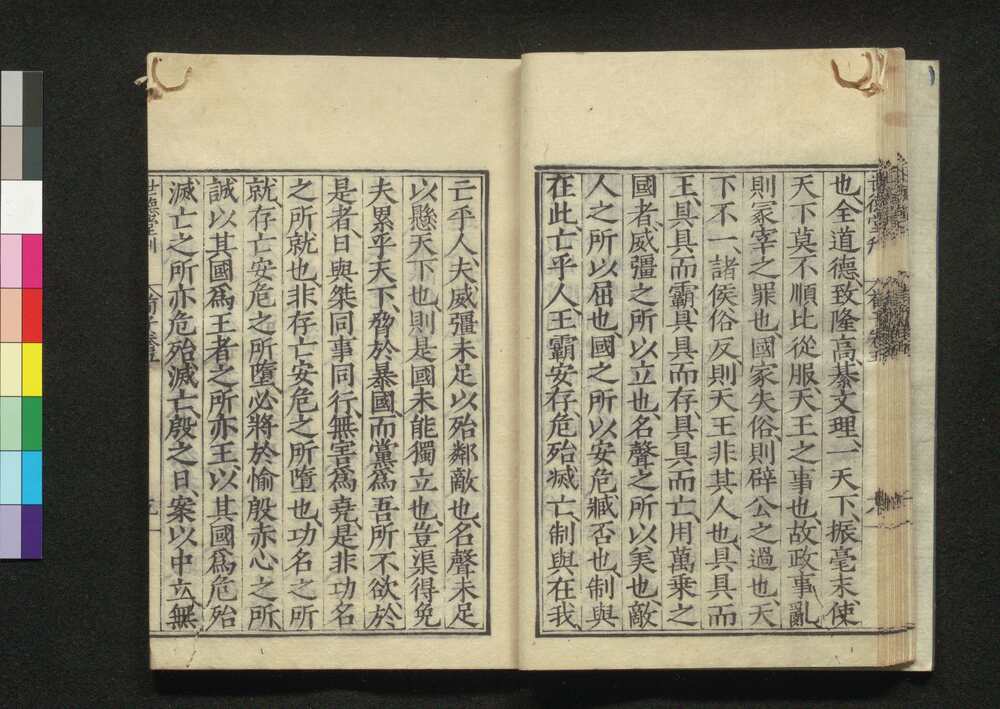 也、全道德、致隆高、綦文理、一天下、振毫末、使
天下莫不順比從服、天王之事也、故政事亂、
則冢宰之罪也、國家失俗、則辟公之過也、天
下不一、諸侯俗反、則天王非其人也、具具而
王、具具而霸、具具而存、具具而亡、用萬乘之
國者、威彊之所以立也、名聲之所以美也、敵
人之所以屈也、國之所以安危臧否也、制與
在此、亡乎人、王霸安存、危殆滅亡、制與在我、
亡乎人、夫威彊未足以殆鄰敵也、名聲未足
以懸天下也、則是國未能獨立也、豈渠得免
夫累乎、天下脅於暴國、而黨爲吾所不欲於
是者、日與桀同事同行、無害爲堯、是非功名
之所就也、非存亡安危之所墮也、功名之所
就、存亡安危之所墮、必將於愉殷赤心之所、
誠以其國爲王者之所亦王、以其國爲危殆
滅亡之所亦危殆滅亡、殷之日、案以中立、無
世德堂刊